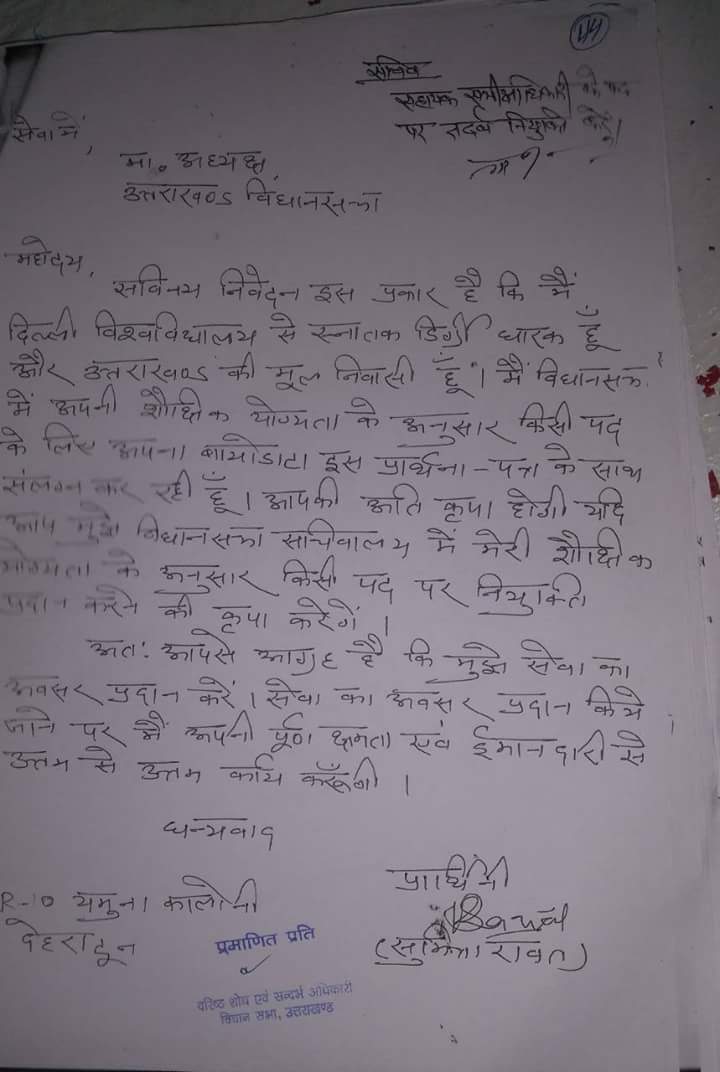 44
सचिव
सहायक समीक्षाधिकारी के पद
पर तदर्थ नियुक्ति करें।
सेवा में,
मा. अध्यक्ष,
उत्तराखण्ड विधानसभा
महोदय,
सविनय निवेदन इस प्रकार है कि मैं
दिल्ली विश्वविद्यालय से स्नातक डिग्री धारक हूँ
और उत्तराखण्ड की मूल निवासी हूँ। मैं विधानसभा
में अपनी शैक्षिक योग्यता के अनुसार किसी पद
के लिए अपना बायोडाटा इस प्रार्थना-पत्र के साथ
संलग्न कर रही हूँ। आपकी अति कृपा होगी यदि
आप मुझे विधानसभा सचिवालय में मेरी शैक्षिक
योग्यता के अनुसार किसी पद पर नियुक्ति
प्रदान करने की कृपा करेगें।
अतः आपसे आग्रह है कि मुझे सेवा का
अवसर प्रदान करें। सेवा का अवसर प्रदान किये
जाने पर मैं अपनी पूर्ण क्षमता एवं ईमानदारी से
उत्तम से उत्तम कार्य करूँगी।
धन्यवाद
प्रार्थिनी
R-10 यमुना कालोनी
देहरादून
(सुमित्रा रावत)
प्रमाणित प्रति
वरिष्ठ शोध एवं सन्दर्भ अधिकारी
विधान सभा, उत्तराखण्ड